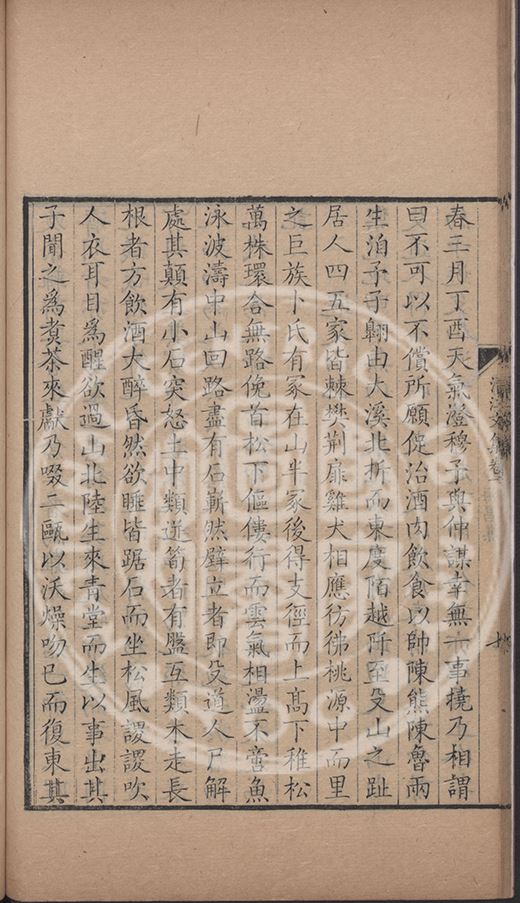 春三月丁酉天氣澄穆予與仲謀幸無一事撓乃相謂
曰不可以不償所願促治酒肉飲食以帥陳熊陳魯兩
生泊予子翺由大溪北折而東度陌越阡至殳山之趾
居人四五家皆棘樊荆扉雞犬相應彷彿桃源中而里
之巨族卜氏有冢在山半冢後得支徑而上髙下稚松
萬株環合無路俛首松下傴僂行而雲氣相盪不啻魚
泳波濤中山回路盡有石嶄然壁立者即殳道人尸解
處其顛有小石突怒土中類迸筍者有盤互類木走長
根者方飲酒大醉昏然欲睡皆踞石而坐松風謖謖吹
人衣耳目爲醒欲過山北陸生來青堂而生以事出其
子聞之爲煑茶來獻乃啜二甌以沃燥吻已而復東其